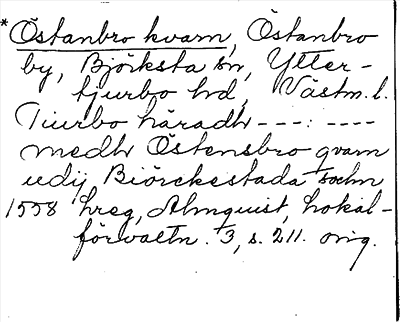 *Östanbro kvarn, Östanbro
by, Björksta sn, Ytter-
tjurbo hd, Västm. l.
Tiurbo häradh ---: ----
medh Östensbro qvarn
udij Biörckestada sochn
1558 hreg, Almquist, Lokal-
förvaltn. 3, s. 211. orig.